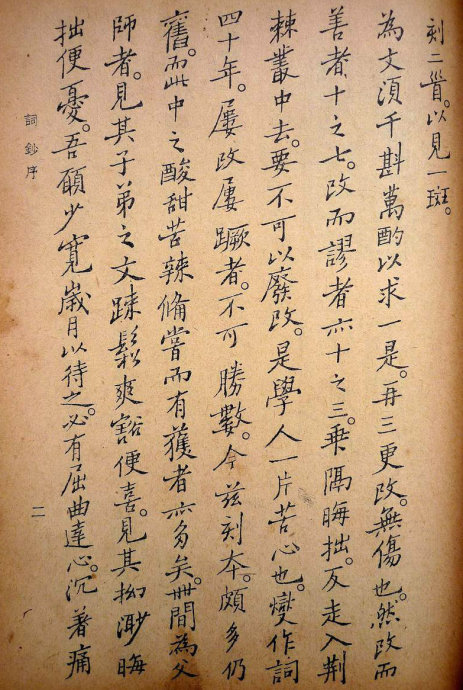 刻二首。以見一斑。
為文須千斟萬酌以求一是。再三更改。無傷也。然改而
善者十之七。改而謬者亦十之三。乖隔晦拙。反走入荆
棘叢中去。要不可以廢改。是學人一片苦心也。燮作詞
四十年。屢改屢蹶者。不可勝數。今茲刻本。頗多仍
舊。而此中之酸甜苦辣備嘗而有獲者亦多矣。世間為父
師者。見其子弟之文疎鬆爽豁便喜。見其拗渺晦
拙便憂。吾願少寬歲月以待之。必有屈曲達心。沉著痛
詞鈔序
二